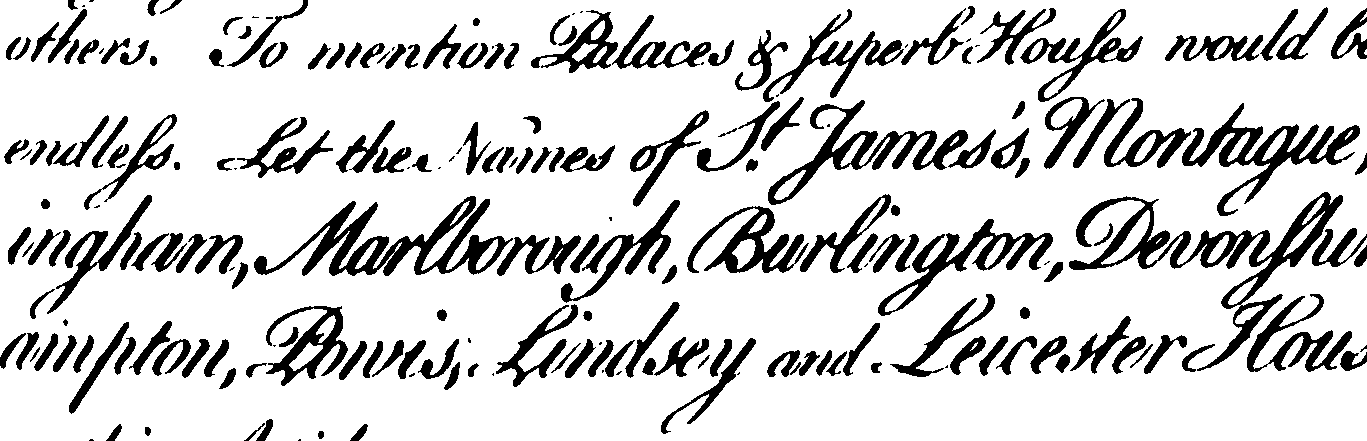 others. To mention Palaces & ſuperb Houſes would be
endleſs. Let the Names of St. James's, Montague,
ingham, Marlborough, Burlington, Devonſhi
ampton, Powis, Lindsey and Leicester Hous